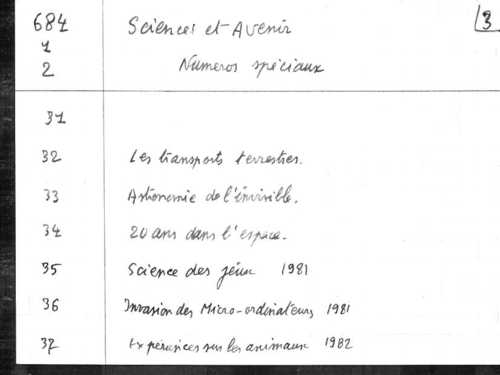 684 Sciences et Avenir 3
1
2 Numeros spéciaux
31
32 Les transports terrestres.
33 Astronomie de l'invisible.
34 20 ans dans l'espace.
35 Science des jeux 1981
36 Invasion des Micro-ordinateurs 1981
37 Expériences sur les animaux 1982